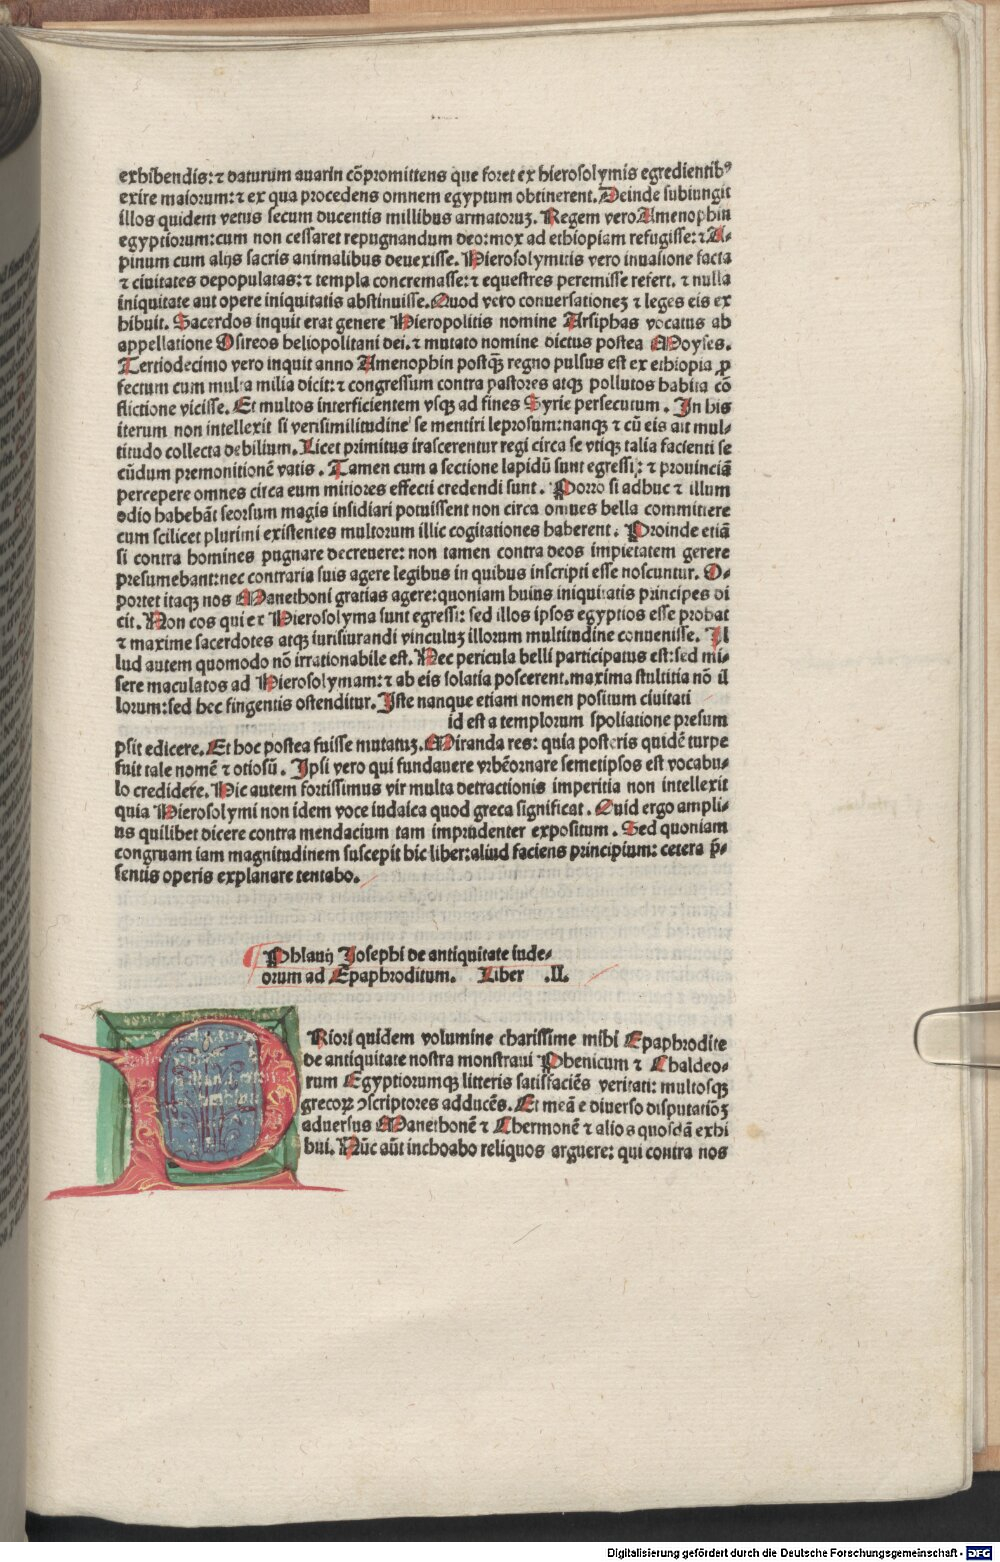 exhibendis: ⁊ daturum auarin cõpromittens que foret ex hierosolymis egredientibꝰ
exire maiorum: ⁊ ex qua procedens omnem egyptum obtinerent. Deinde subiungit
illos quidem vetus secum ducentis millibus armatoruȝ. Regem vero Amenophin
egyptiorum: cum non cessaret repugnandum deo: mox ad ethiopiam refugisse: ⁊ A-
pinum cum alijs sacris animalibus deuexisse. Hierosolymitis vero inuasione facta
⁊ ciuitates depopulatas: ⁊ templa concremasse: ⁊ equestres peremisse refert. ⁊ nulla
iniquitate aut opere iniquitatis abstinuisse. Quod vero conuersationeȝ ⁊ leges eis ex
hibuit. Sacerdos inquit erat genere Hieropolitis nomine Arsiphas vocatus ab
appellatione Osireos heliopolitani dei. ⁊ mutato nomine dictus postea Moyses.
Tertiodecimo vero inquit anno Amenophin postqȝ regno pulsus est ex ethiopia ꝓ
fectum cum multa milia dicit: ⁊ congressum contra pastores atqȝ pollutos habita cõ
flictione vicisse. Et multos interficientem vsqȝ ad fines Syrie persecutum. In his
iterum non intellexit si verisimilitudine se mentiri leprosum: nanqȝ ⁊ cũ eis ait mul-
titudo collecta debilium. Licet primitus irascerentur regi circa se vtiqȝ talia facienti se
cũdum premonitionẽ vatis. Tamen cum a sectione lapidũ sunt egressi: ⁊ prouinciã
percepere omnes circa eum mitiores effecti credendi sunt. Porro si adhuc ⁊ illum
odio habebãt seorsum magis insidiari potuissent non circa omnes bella committere
cum scilicet plurimi existentes multorum illic cogitationes haberent. Proinde etiã
si contra homines pugnare decreuere: non tamen contra deos impietatem gerere
presumebant: nec contraria suis agere legibus in quibus inscripti esse noscuntur. O-
portet itaqȝ nos Manethoni gratias agere: quoniam huius iniquitatis principes di
cit. Non eos qui ex Hierosolyma sunt egressi: sed illos ipsos egyptios esse probat
⁊ maxime sacerdotes atqȝ iurisiurandi vinculuȝ illorum multitudine conuenisse. Il
lud autem quomodo nõ irrationabile est. Nec pericula belli participatus est: sed mi-
sere maculatos ad Hierosolymam: ⁊ ab eis solatia poscerent. maxima stultitia nõ il
lorum: sed hec fingentis ostenditur. Iste nanque etiam nomen positum ciuitati
id est a templorum spoliatione presum
psit edicere. Et hoc postea fuisse mutatuȝ. Miranda res: quia posteris quidẽ turpe
fuit tale nomẽ ⁊ otiosũ. Ipsi vero qui fundauere vrbẽ ornare semetipsos est vocabu-
lo credidere. Hic autem fortissimus vir multa detractionis imperitia non intellexit
quia Hierosolymi non idem voce iudaica quod greca significat. Quid ergo ampli-
us quilibet dicere contra mendacium tam imprudenter expositum. Sed quoniam
congruam iam magnitudinem suscepit hic liber: aliud faciens principium: cetera p̃-
sentis operis explanare tentabo.
Phlauij Iosephi de antiquitate iude-
orum ad Epaphroditum. Liber .II.
PRiori quidem volumine charissime mihi Epaphrodite
de antiquitate nostra monstraui Phenicum ⁊ Chaldeo-
rum Egyptiorumqȝ litteris satisfaciẽs veritati: multosqȝ
grecoꝝ ↄscriptores adducẽs. Et meã e diuerso disputatiõȝ
aduersus Manethonẽ ⁊ Chermonẽ ⁊ alios quosdã exhi
bui. Nũc aũt inchoabo reliquos arguere: qui contra nos
Digitalisierung gefördert durch die Deutsche Forschungsgemeinschaft - DFG